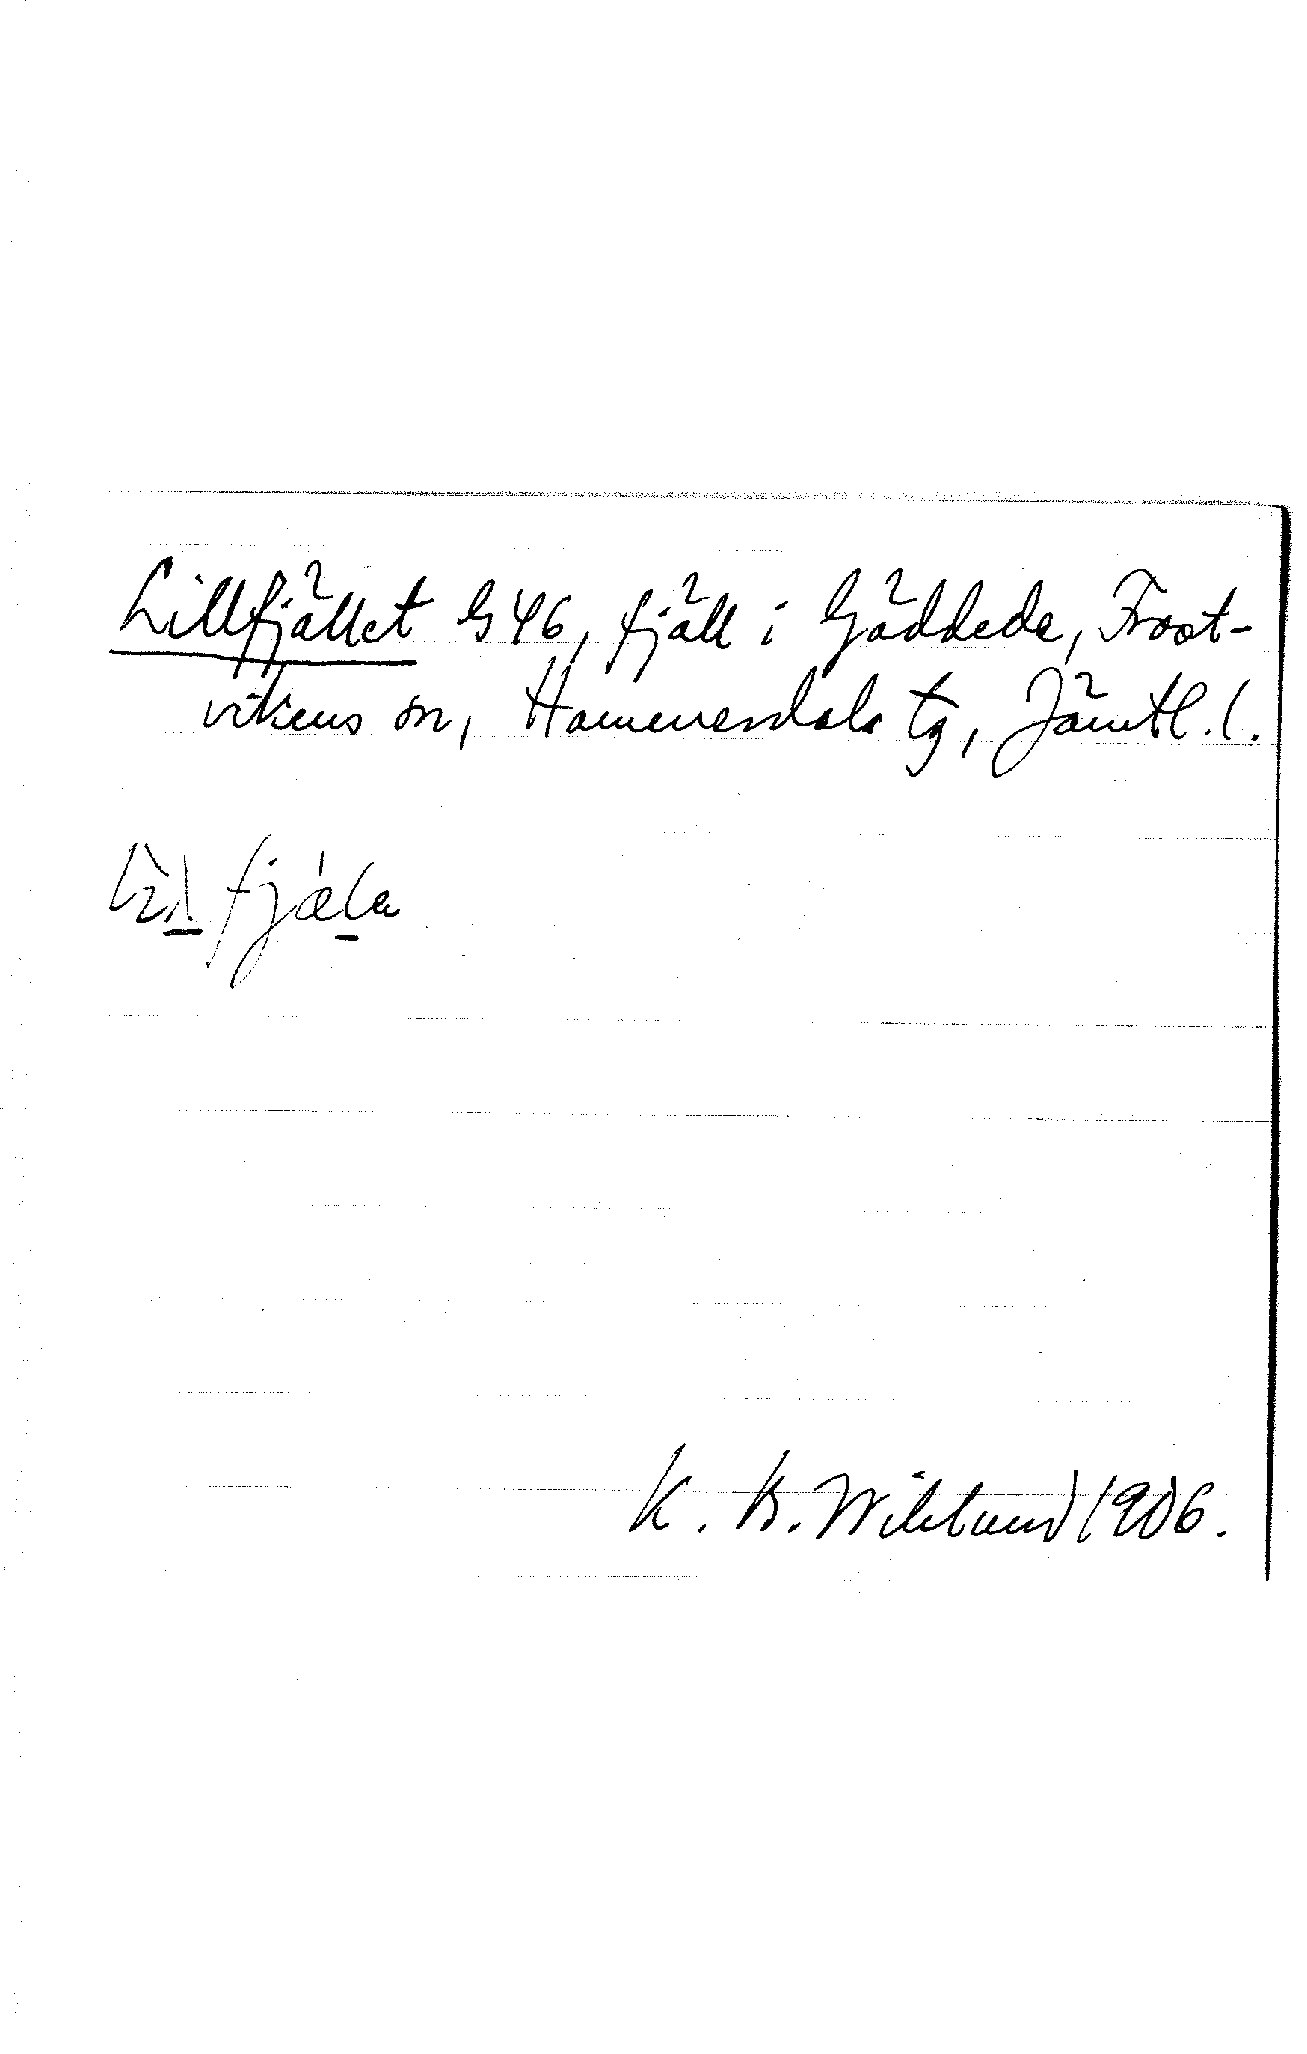 Lillfjället G 46, fjäll i Gäddede, Frost-
vikens sn, Hammerdals tg, Jämtl. l.
fjæla
K. B. Wiklund 1906.